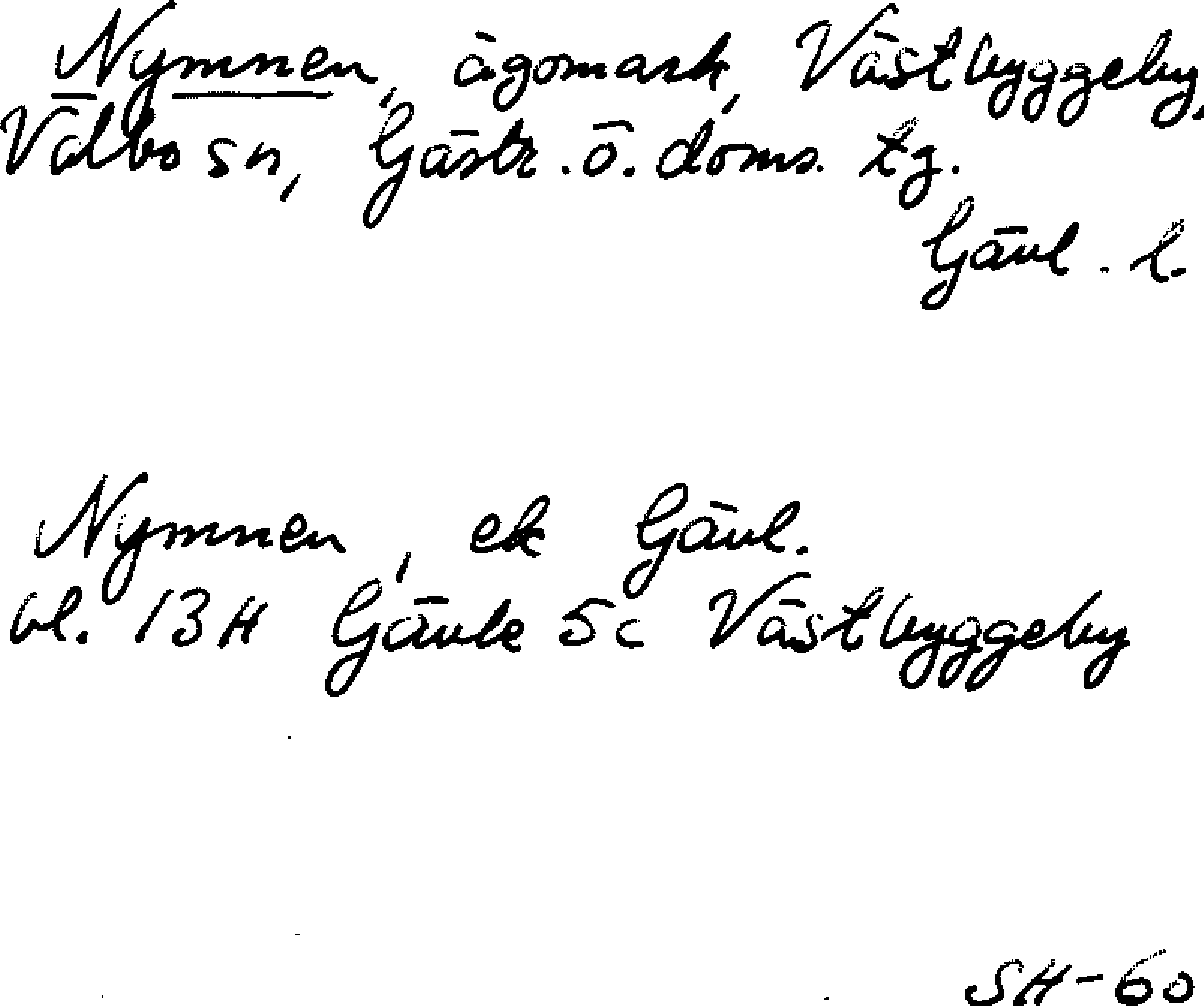 Nymnen, ägomark, Västbyggeby,
Valbo sn, Gästr. ö. doms. tg.
Gävl. l.
Nymnen, ek Gävl.
bl. 13H Gävle 5c Västbyggeby
SH-60